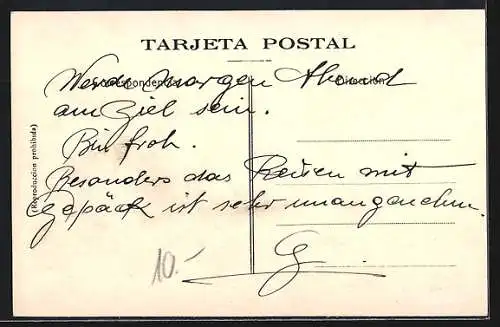 TARJETA POSTAL
Correspondencia
Dirección
(Reproducción prohibida)
Werde morgen Abend
am Ziel sein.
Bin froh.
Besonders das Reisen mit
Gepäck ist sehr unangenehm.
G.
10.-